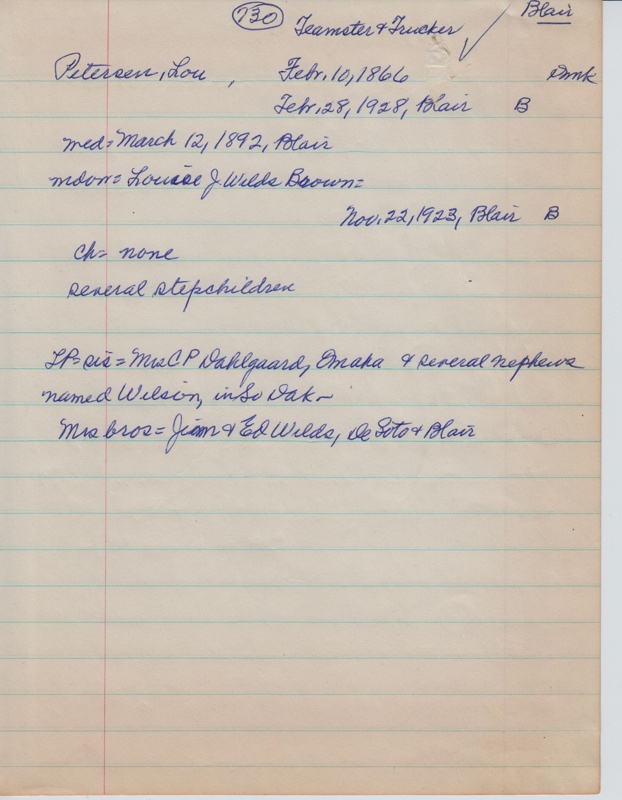 730
Teamster & Trucker
Blair
Petersen, Lou, Febr. 10, 1866 Dmk
Febr. 28, 1928, Blair B
med = March 12, 1892, Blair
mdon = Louise J. Wilds Brown =
Nov. 22, 1923, Blair B
Ch = none
several stepchildren
LP = sis = Mrs C P Dahlgaard, Omaha & several nephews
named Wilson, in So Dak ~
Mrs bros = Jim & Ed Wilds, De Soto & Blair